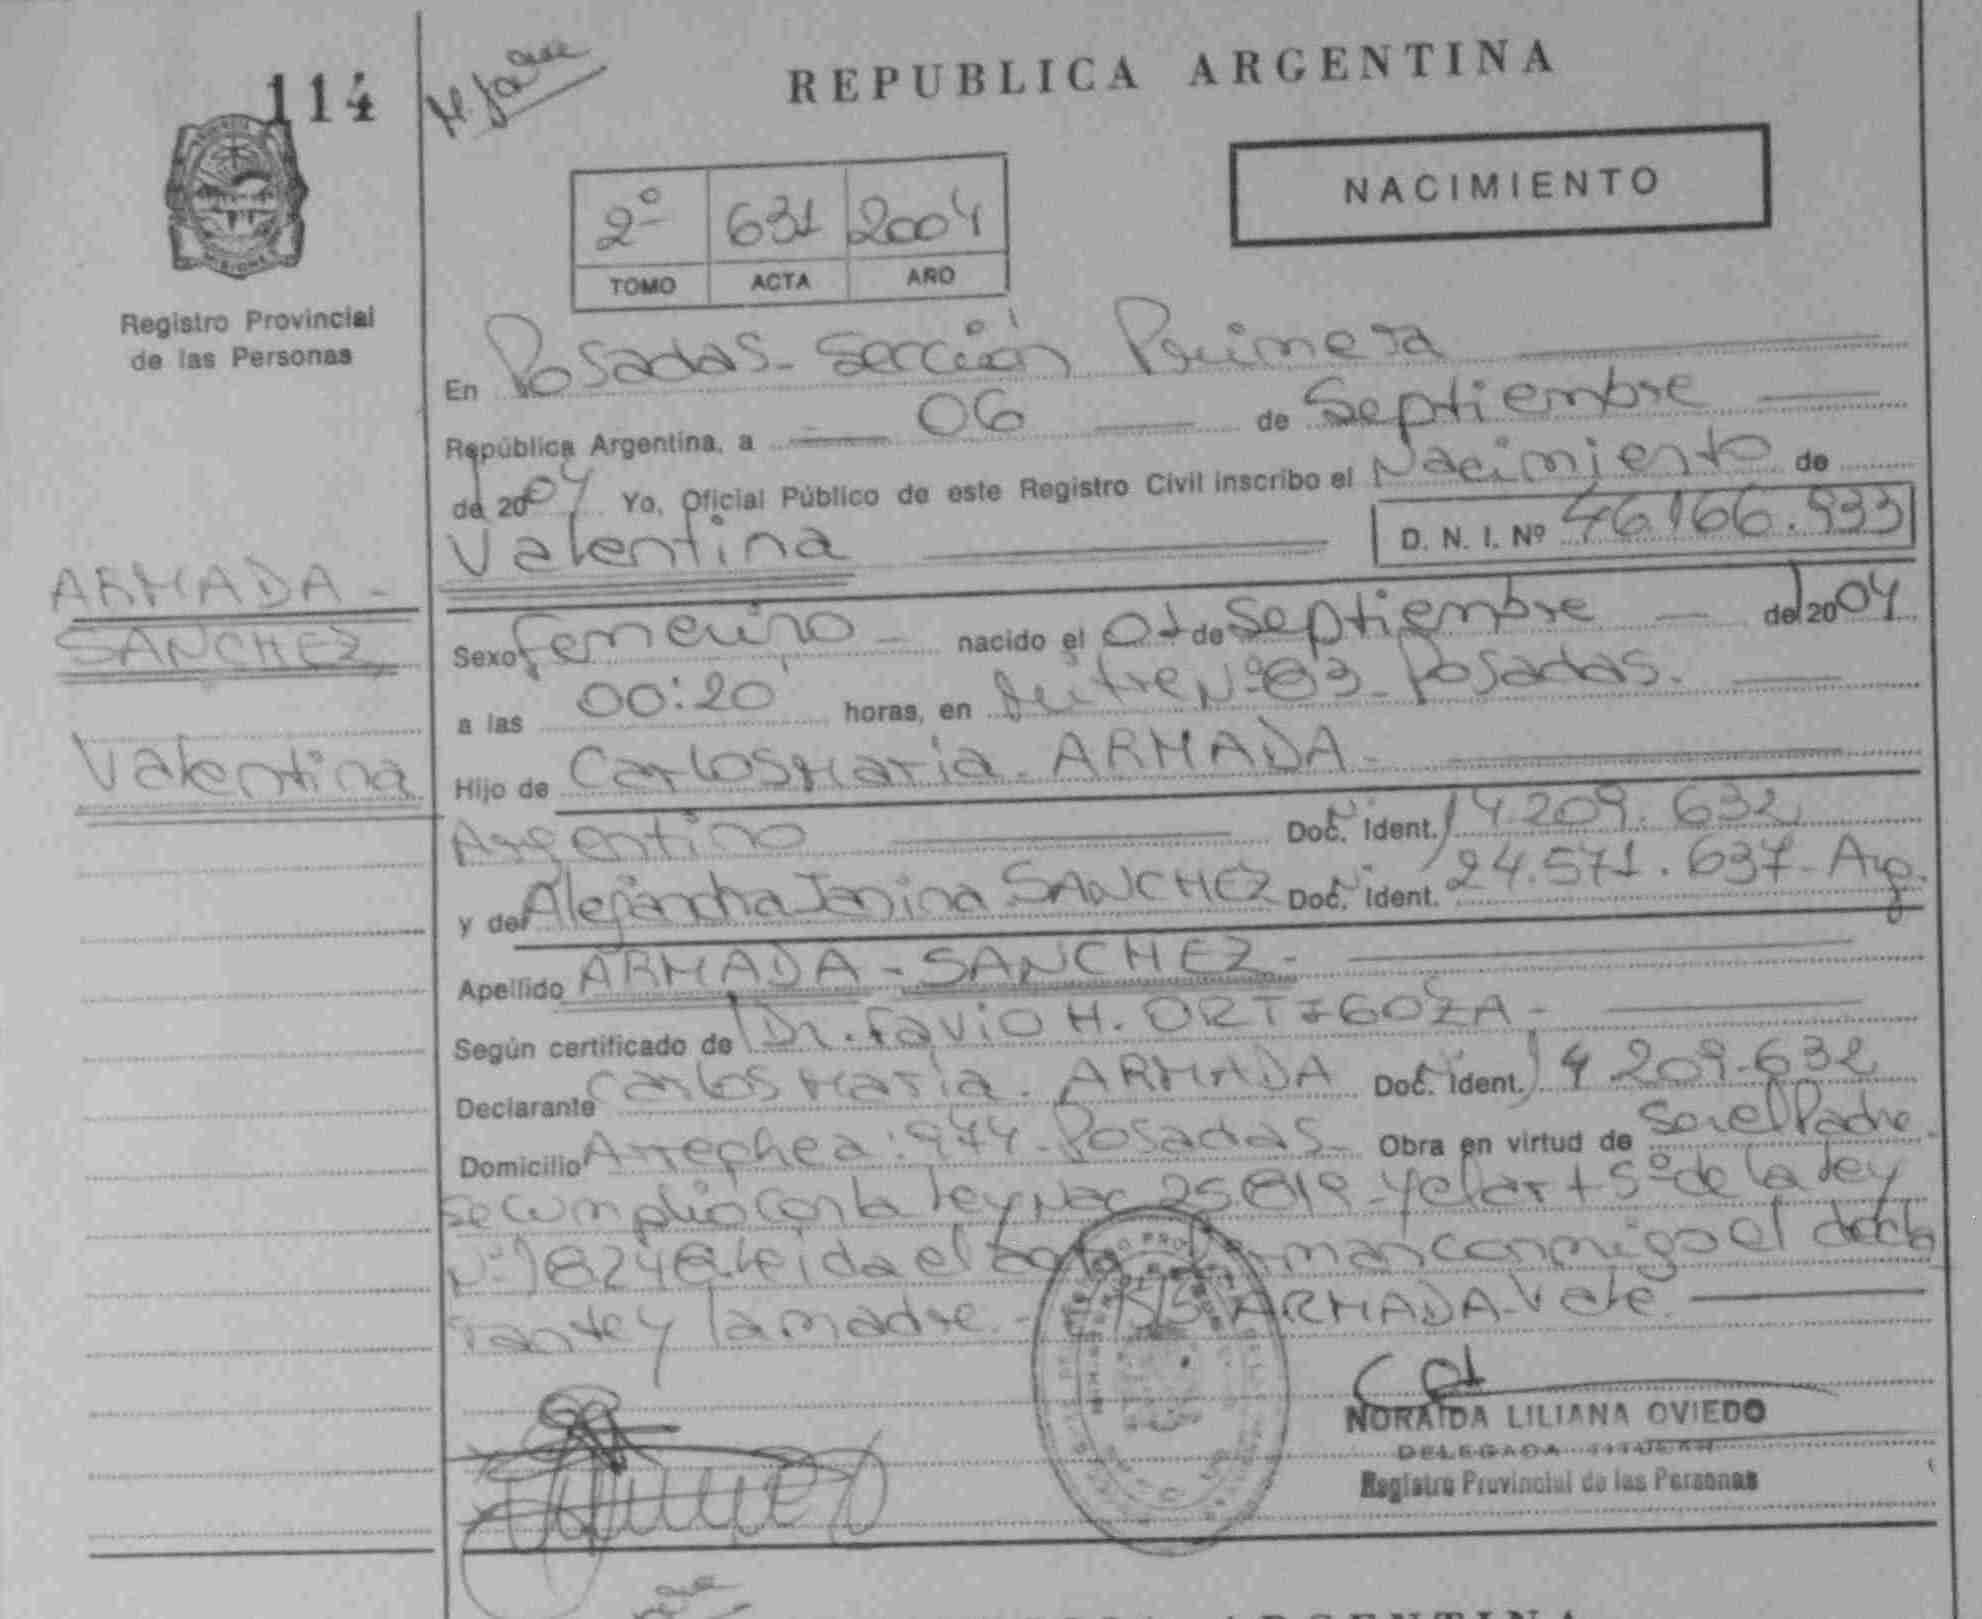 114
REPUBLICA ARGENTINA
NACIMIENTO
2º 631 2004
TOMO ACTA AÑO
Registro Provincial
de las Personas
En Posadas - Sección Primera
República Argentina, a 06 de Septiembre
de 2004 Yo, Oficial Público de este Registro Civil inscribo el Nacimiento de
Valentina D. N. I. Nº 46.166.933
ARMADA -
SANCHEZ
Valentina
Sexo femenino - nacido el 01 de Septiembre de 2004
a las 00:20 horas, en Nº 83 - Posadas.
Hijo de Carlos Maria - ARMADA -
Argentino Doc. Ident. 14.209.632
y de Alejandra Janina SANCHEZ Doc. Ident. 24.571.637 - Arg.
Apellido ARMADA - SANCHEZ -
Según certificado de Dr. Favio H. ORTIGOZA -
Declarante Carlos Maria - ARMADA Doc. Ident. 14 209.632
Domicilio Arrechea: 974 - Posadas - Obra en virtud de ser el Padre -
se cumplió con la ley Nac 25.819 - y el art 5º de la ley
Nº 18248 - leida el conmigo el decla
rante y la madre. - ARMADA - Vale.
NORAIDA LILIANA OVIEDO
DELEGADA TITULAR
Registro Provincial de las Personas